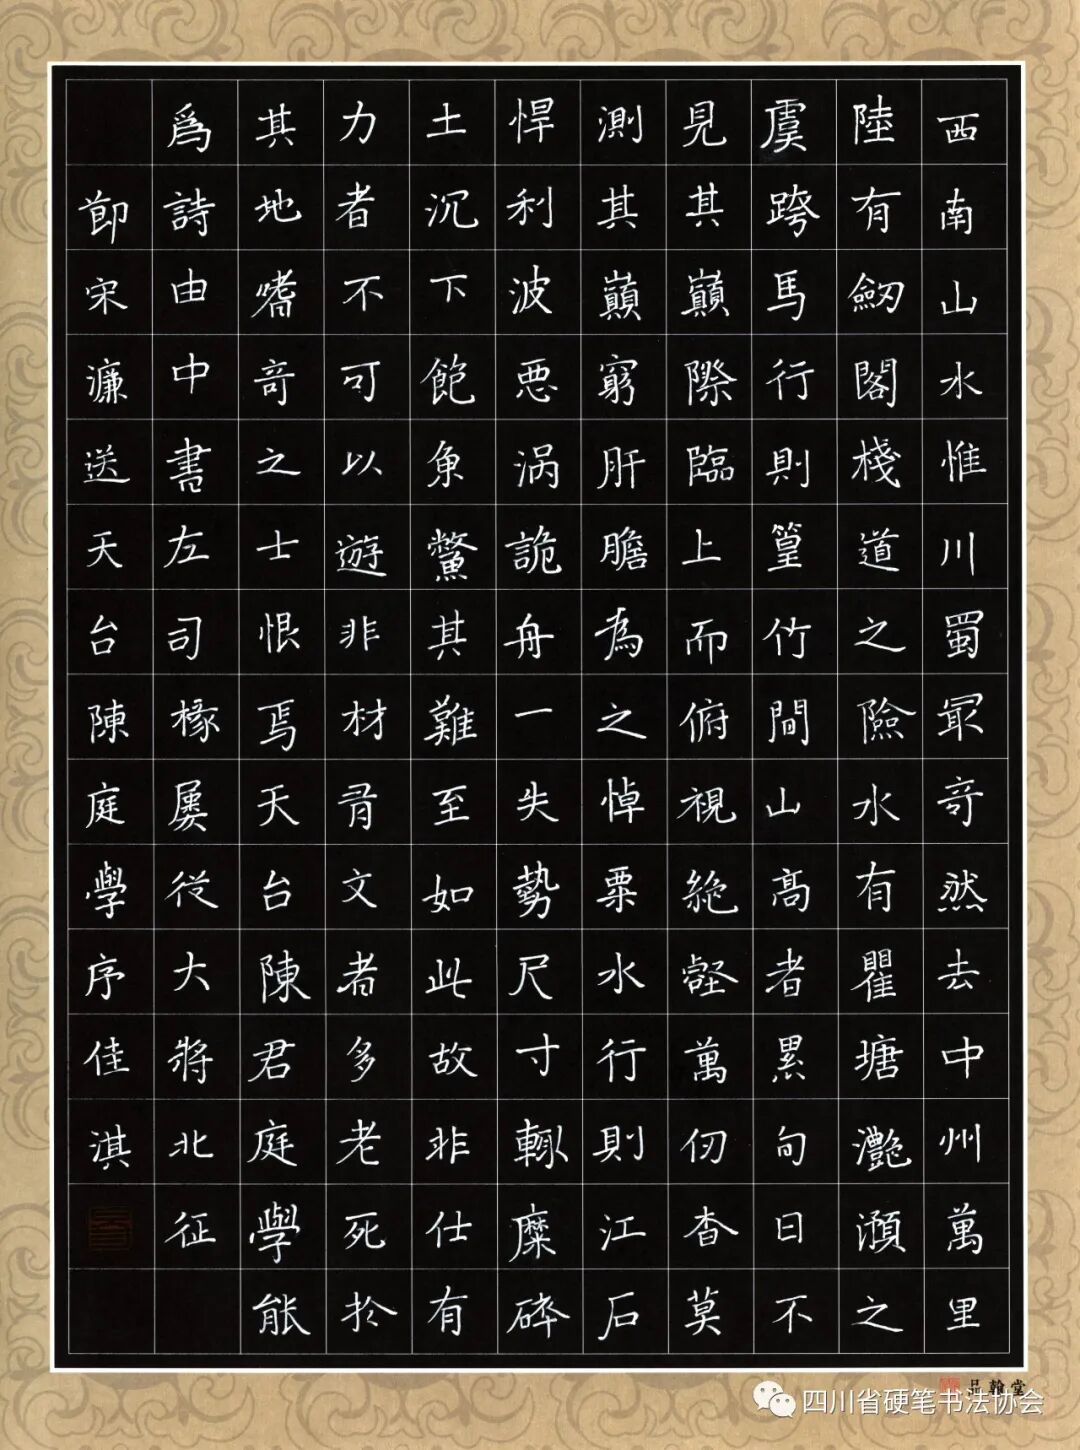 西南山水惟川蜀冣竒然去中州萬里
陸有劒閣棧道之險水有瞿塘灔澦之
虞跨馬行則篁竹間山髙者累旬日不
見其巔際臨上而俯視絶壑萬仞杳莫
測其巔窮肝膽為之悼粟水行則江石
悍利波惡涡詭舟一失勢尺寸輙糜碎
土沉下飽魚鱉其難至如此故非仕有
力者不可以遊非材有文者多老死於
其地嗜竒之士恨焉天台陳君庭學能
爲詩由中書左司掾屢從大將北征
節宋濂送天台陳庭學序佳淇
品翰堂
四川省硬笔书法协会